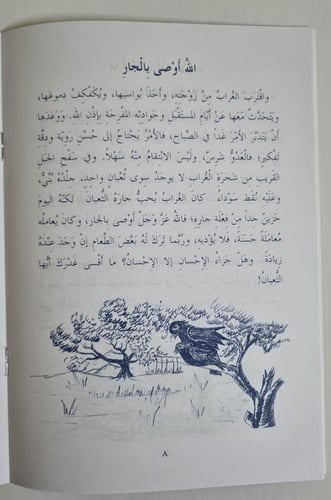 اللهُ أَوْصى بِالْجارِ
واقْتَرَبَ الغُرابُ مِنْ زَوْجَتِهِ، وأَخَذَ يُواسِيها، ويُكَفْكِفُ دموعَها،
ويَتَحَدَّثُ مَعَها عَنْ أَيّامِ المستَقْبَلِ وحَوادِثِهِ المفْرِحَةِ بِإِذْنِ اللهِ. وَوَعَدَها
أَنْ يَتَدَبَّرَ الأَمْرَ غَداً في الصَّباحِ، فالأَمْرُ يَحْتاجُ إلى حُسْنِ رَوِيَّةٍ ودِقَّةِ
تَفْكيرٍ، فالعَدُوُّ شَرِسٌ، ولَيْسَ الانْتِقامُ مِنْهُ سَهْلاً. وفي سَفْحِ الجَبَلِ
القَريبِ مِنْ شَجَرَةِ الغُرابِ لا يوجَدُ سوى ثُعْبانٍ واحِدٍ، جِلْدُهُ بُنِّيٌّ،
وعَلَيْهِ نُقَطٌ سَوْداءُ. كانَ الغُرابُ يُحِبُّ جارَهُ الثُّعْبانَ.. لكنَّهُ اليومَ
حَزينٌ جداً مِنْ فِعْلَةِ جارِهِ؛ فاللهُ عَزَّ وَجَلَّ أَوْصى بالجارِ، وكانَ يُعامِلُهُ
مُعامَلَةً حَسَنَةً، فلا يُؤْذيهِ، ورُبَّما تَرَكَ لَهُ بَعْضَ الطَّعامِ إنْ وَجَدَ عِنْدَهُ
زِيادَةً.. وهَلْ جَزاءُ الإحْسانِ إلا الإحْسانُ؟ ما أَقْسى غَدْرَكَ أَيُّها
الثُّعبانُ!
٨